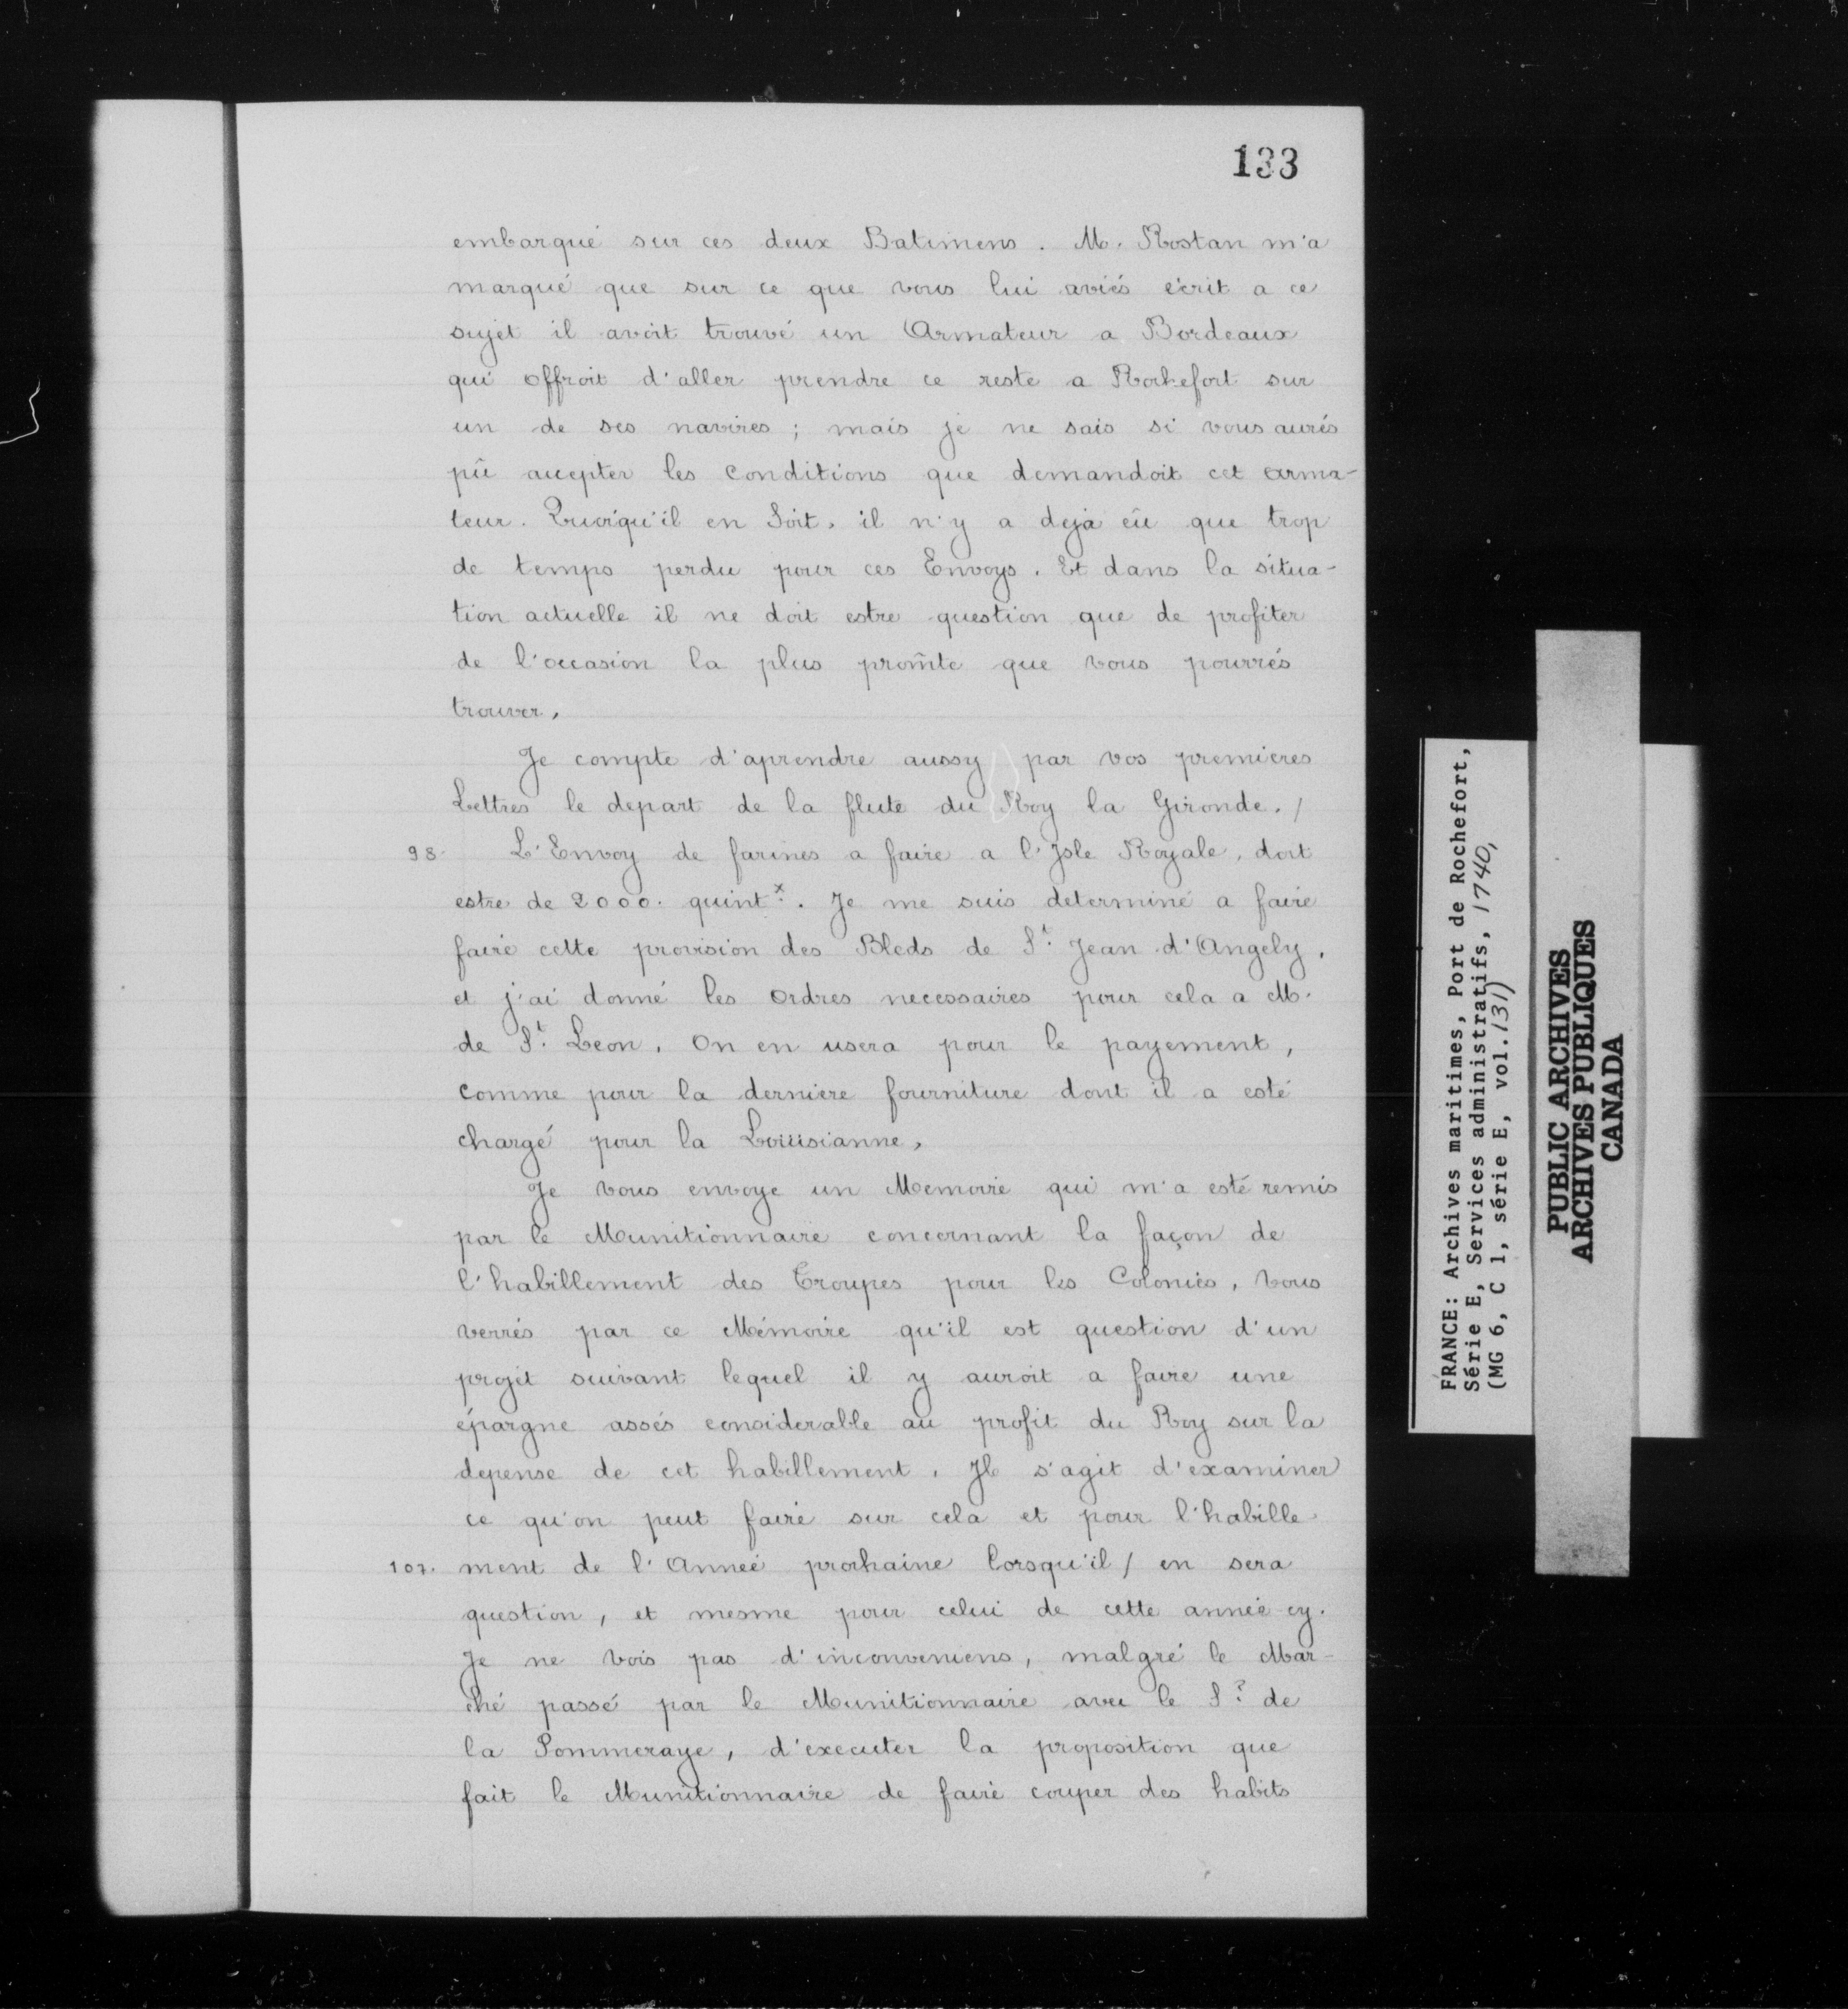 133
embarqué sur ces deux Batimens. M. Rostan m'a
marqué que sur ce que vous lui aviés écrit a ce
sujet il avoit trouvé un Armateur a Bordeaux
qui offroit d'aller prendre ce reste a Rochefort sur
un de ses navires ; mais je ne sais si vous aurés
pû accepter les conditions que demandoit cet arma-
teur. Quoiqu'il en Soit, il n'y a dejà eû que trop
de temps perdu pour ces Envoys. Et dans la situa-
tion actuelle il ne doit estre question que de profiter
de l'occasion la plus prom̃te que vous pourrés
trouver,
Je compte d'aprendre aussy par vos premieres
Lettres le depart de la flute du Roy la Gironde. /
98. L'Envoy de farines a faire a l'Isle Royale, doit
estre de 2000. quint.x. Je me suis determiné a faire
faire cette provision des Bleds de S.t Jean d'Angely,
et j'ai donné les ordres necessaires pour cela a M.
de S.t Leon. On en usera pour le payement,
comme pour la derniere fourniture dont il a esté
chargé pour la Loüisianne,
Je vous envoye un Memoire qui m'a esté remis
par le Munitionnaire concernant la façon de
l'habillement des Troupes pour les Colonies, vous
verrés par ce Mémoire qu'il est question d'un
projet suivant lequel il y auroit a faire une
épargne assés considerable au profit du Roy sur la
depense de cet habillement. Il s'agit d'examiner
ce qu'on peut faire sur cela et pour l'habille
107. ment de l'Année prochaine lorsqu'il / en sera
question, et mesme pour celui de cette année-cy.
Je ne vois pas d'inconveniens, malgré le Mar-
ché passé par le Munitionnaire avec le S.r de
la Pommeraye, d'executer la proposition que
fait le Munitionnaire de faire couper des habits
FRANCE: Archives maritimes, Port de Rochefort,
Série E, Services administratifs, 1740,
(MG 6, C 1, série E, vol.131)
PUBLIC ARCHIVES
ARCHIVES PUBLIQUES
CANADA